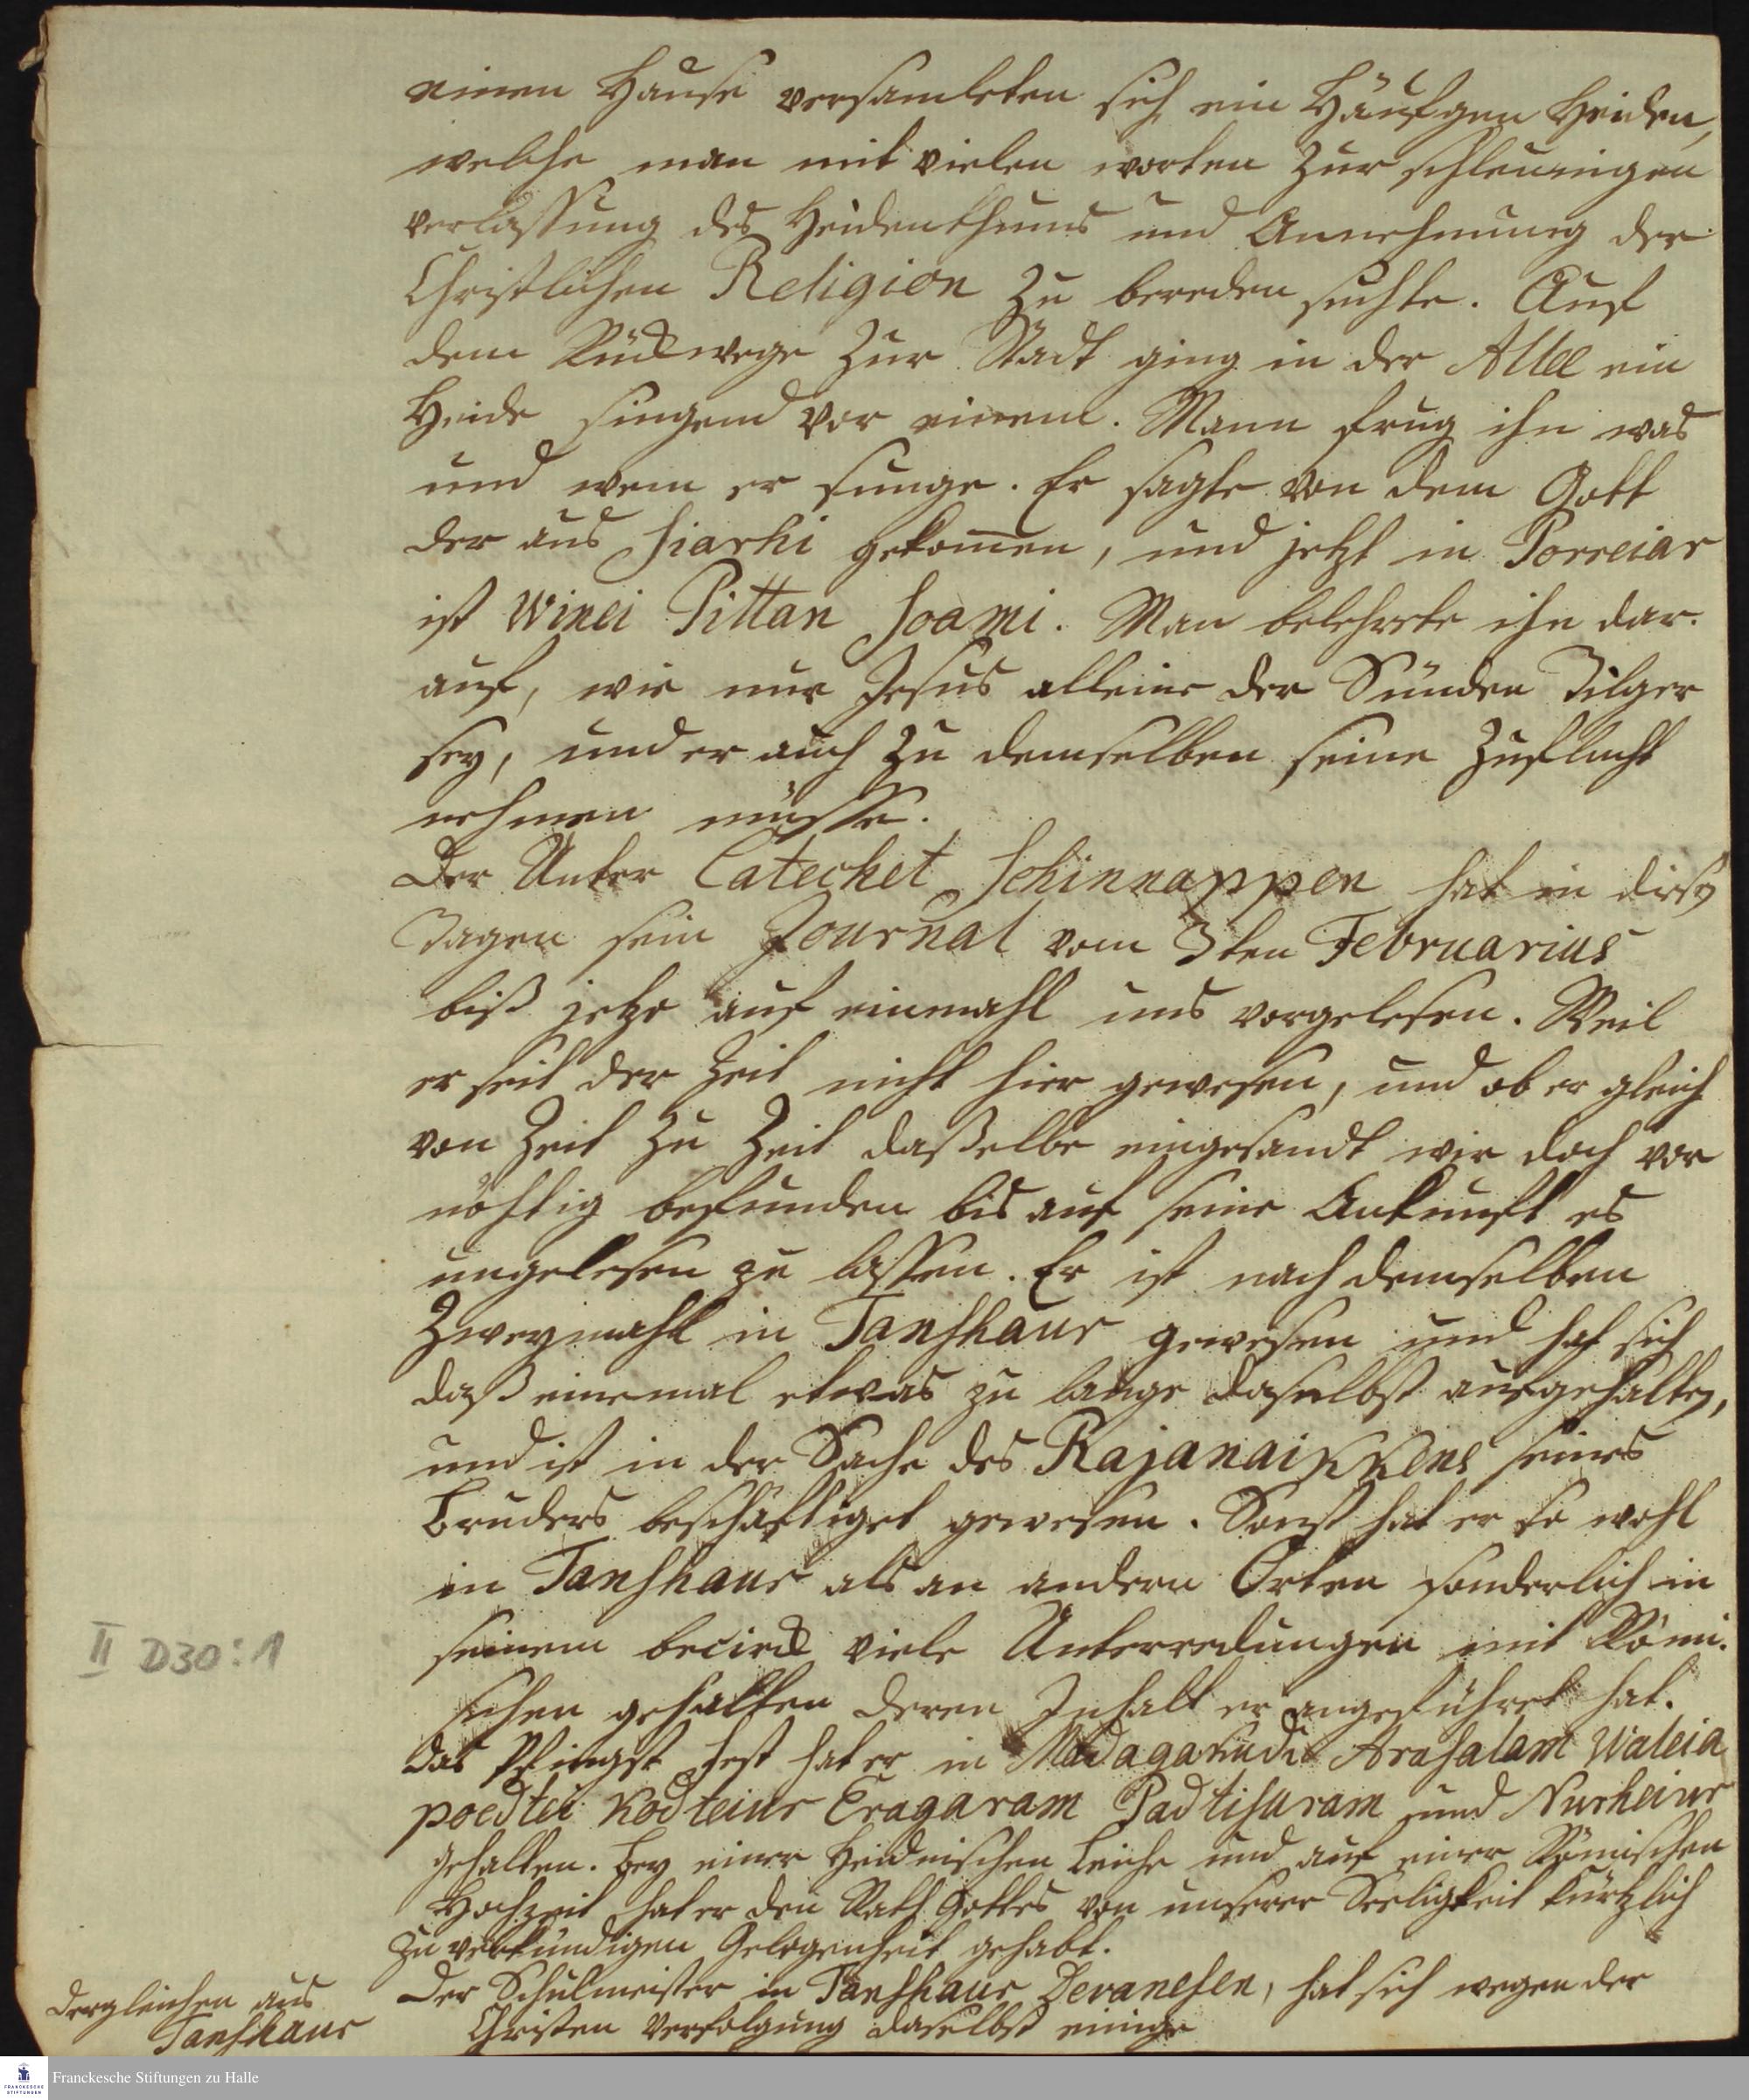 einen Hause versamleten sich ein Häufgen Heiden,
welche man mit vielen worten zur schleunigen
verlassung des Heidenthums und Annehmung der
Christlichen Religion zu bereden suchte. Auf
dem Rückwege zur Stadt ging in der Allee ein
Heide singend vor einem. Mann frug ihn was
und wem er sunge. Er sagte von dem Gott
der aus Siarhi gekom̄en, und jetzt in Porreiar
ist Winei Tittan Soami. Man belehrete ihn dar-
auf, wie nur Jesus alleine der Sünden Tilger
sey, und er auch zu demselben seine Zuflucht
nehmen müsse.
Der Unter Catechet Schinnappen hat in diesen
Tagen sein Journal vom 3ten Februarius
biß jetzo auf einmahl uns vorgelesen. Weil
er seit der Zeit nicht hier gewesen, und ob er gleich
von Zeit zu Zeit daßelbe eingesandt wir doch vor
nöhtig befunden bis auf seine Ankunft es
ungelesen zu lassen. Er ist nach demselben
Zweymahl in Tanshaur gewesen und hat sich
daß einemal etwas zu lange daselbst aufgehalten,
und ist in der Sache des Rajanaikkens seines
Bruders beschäftiget gewesen. Sonst hat er so wohl
in Tanshaur als an andern Orten sonderlich in
seinem becirck viele Unterredungen mit Römi-
schen gehalten deren Inhalt er angeführet hat.
das Pfingst Fest hat er in Madagakudi Arasalam Waleia
poedtei Kodteiur Eragaram Padtisuram und Nurheiur
gehalten. Bey einer Heidnischen Leiche und auf einer Römischen
Hochzeit hat er den Rath Gottes von unserer Seeligkeit kürtzlich
zu verkündigen Gelegenheit gehabt.
Der Schulmeister in Tanshaur Devanesen, hat sich wegen der
Christen Verfolgung daselbst einige
dergleichen aus
Tanshaur
II D30:1
Franckesche Stiftungen zu Halle
FRANCKESCHE STIFTUNGEN